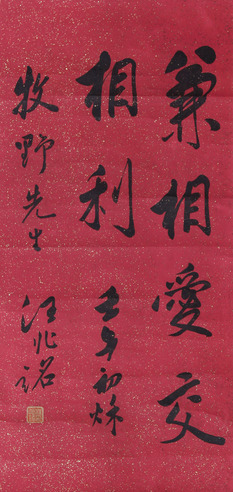 兼相愛交
相利
壬午初秌
牧野先生
汪兆銘